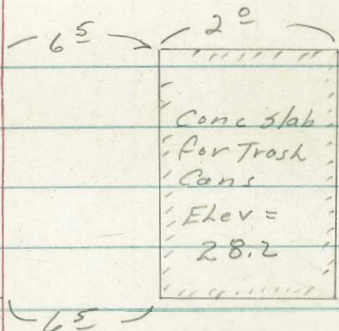 6 5 2 0
Conc slab
for Trash
Cans
Elev =
28.2
6 5